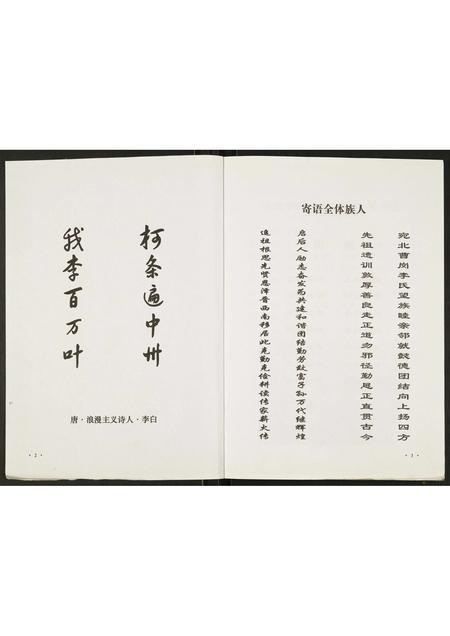 我李百万叶
柯条遍中州
唐·浪漫主义诗人·李白
·2·
寄语全体族人
宛北曹岗李氏望族睦亲邻就懿德团结向上扬四方
先祖遗训敦厚善良走正道勿邪径勤思正直贯古今
启后人励志奋发苑共建和谐团结勤劳致富子孙万代继辉煌
追祖根思先贤恩泽晋西南移居此克勤克俭耕读传家薪火传
·3·